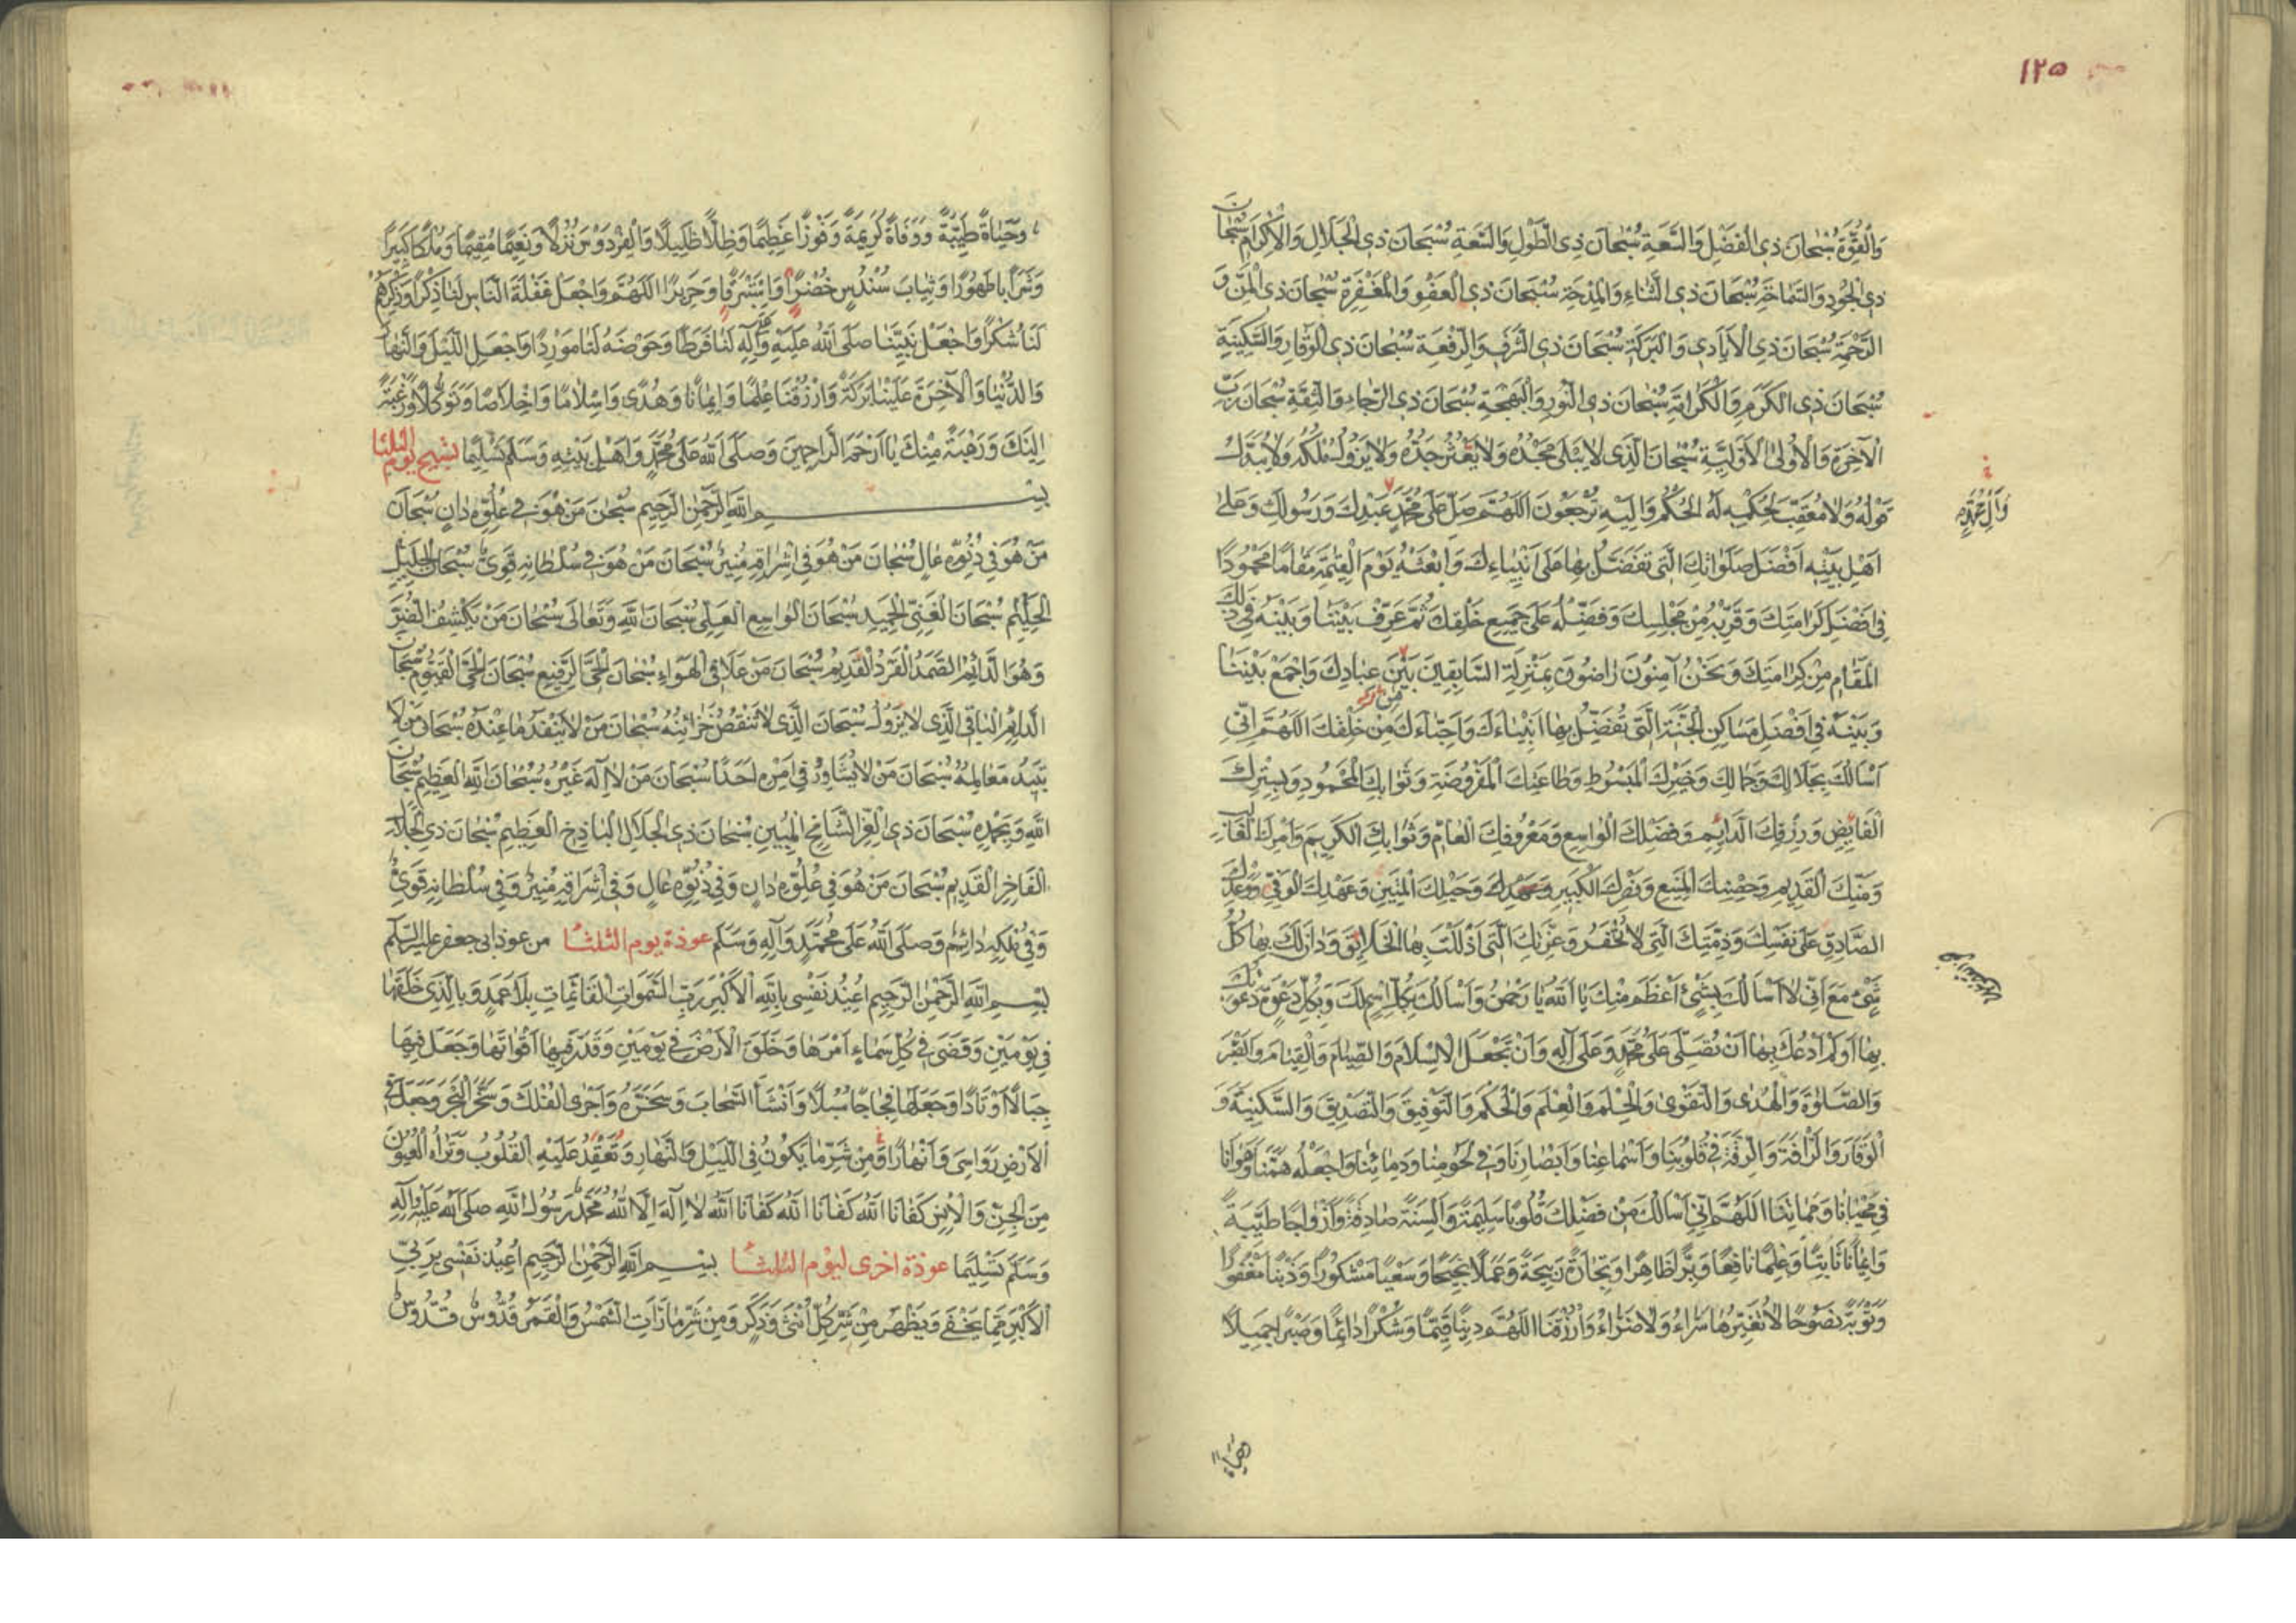 ١٢٥
وَالْقُوَّةِ سُبْحَانَ ذِي الْفَضْلِ وَالسَّعَةِ سُبْحَانَ ذِي الطَّوْلِ وَالسَّعَةِ سُبْحَانَ ذِي الْجَلَالِ وَالْاِكْرَامِ سُبْحَانَ
ذِي الْجُودِ وَالسَّمَاحَةِ سُبْحَانَ ذِي الثَّنَاءِ وَالْمِدْحَةِ سُبْحَانَ ذِي الْعَفْوِ وَالْمَغْفِرَةِ سُبْحَانَ ذِي الْمَنِّ وَ
الرَّحْمَةِ سُبْحَانَ ذِي الْاَيَادِي وَالْبَرَكَةِ سُبْحَانَ ذِي الشَّرَفِ وَالرِّفْعَةِ سُبْحَانَ ذِي الْوَقَارِ وَالسَّكِينَةِ
سُبْحَانَ ذِي الْكَرَمِ وَالْكَرَامَةِ سُبْحَانَ ذِي النُّورِ وَالْبَهْجَةِ سُبْحَانَ ذِي الرَّجَاءِ وَالثِّقَةِ سُبْحَانَ رَبِّ
الْآخِرَةِ وَالْاُولٰى الْاَوَّلِيَّةِ سُبْحَانَ الَّذِي لَا يَبْلٰى مَجْدُهُ وَلَا يَعْثُرُ جَدُّهُ وَلَا يَزُولُ مُلْكُهُ وَلَا يُبَدَّلُ
قَوْلُهُ وَلَا مُعَقِّبَ لِحُكْمِهِ لَهُ الْحُكْمُ وَاِلَيْهِ تُرْجَعُونَ اَللّٰهُمَّ صَلِّ عَلٰى مُحَمَّدٍ عَبْدِكَ وَرَسُولِكَ وَعَلٰى
وَآلِ مُحَمَّدٍ
اَهْلِ بَيْتِهِ اَفْضَلَ صَلَوَاتِكَ الَّتِي تَفَضَّلُ بِهَا عَلٰى اَنْبِيَاءِكَ وَابْعَثْهُ يَوْمَ الْقِيٰمَةِ مَقَامًا مَحْمُودًا
فِي اَفْضَلِ كَرَامَتِكَ وَقَرِّبْهُ مِنْ مَجْلِسِكَ وَفَضِّلْهُ عَلٰى جَمِيعِ خَلْقِكَ ثُمَّ عَرِّفْ بَيْنَنَا وَبَيْنَهُ فِي ذٰلِكَ
الْمَقَامِ مِنْ كَرَامَتِكَ وَنَحْنُ آمِنُونَ رَاضُونَ بِمَنْزِلَةِ السَّابِقِينَ بَيْنَ عِبَادِكَ وَاجْمَعْ بَيْنَنَا
مِنْ
وَبَيْنَهُ فِي اَفْضَلِ مَسَاكِنِ الْجَنَّةِ الَّتِي تُفَضِّلُ بِهَا اَنْبِيَاءَكَ وَاَحِبَّاءَكَ مِنْ خَلْقِكَ اَللّٰهُمَّ اِنِّي
اَسْاَلُكَ بِجَلَالِكَ وَجَمَالِكَ وَخَيْرِكَ الْمَبْسُوطِ وَطَاعَتِكَ الْمَفْرُوضَةِ وَثَوَابِكَ الْمَحْمُودِ وَبِسِتْرِكَ
الْفَائِضِ وَرِزْقِكَ الدَّائِمِ وَفَضْلِكَ الْوَاسِعِ وَمَعْرُوفِكَ الْعَامِّ وَثَوَابِكَ الْكَرِيمِ وَاَمْرِكَ الْغَالِبِ
وَمَنِّكَ الْقَدِيمِ وَحِصْنِكَ الْمَنِيعِ وَنَصْرِكَ الْكَبِيرِ وَحَبْلِكَ الْمَتِينِ وَعَهْدِكَ الْوَفِيِّ وَوَعْدِكَ
الصَّادِقِ عَلٰى نَفْسِكَ وَذِمَّتِكَ الَّتِي لَا تُخْفَرُ وَعِزَّتِكَ الَّتِي اَذْلَلْتَ بِهَا الْخَلَائِقَ وَدَانَ لَكَ بِهَا كُلُّ
شَيْءٍ مَعَ اَنِّي لَا اَسْاَلُكَ بِشَيْءٍ اَعْظَمَ مِنْكَ يَا اَللّٰهُ يَا رَحْمٰنُ وَاَسْاَلُكَ بِكُلِّ اسْمٍ لَكَ وَبِكُلِّ دَعْوَةٍ دَعَوْتُكَ
بِهَا اَوْ لَمْ اَدْعُكَ بِهَا اَنْ تُصَلِّيَ عَلٰى مُحَمَّدٍ وَعَلٰى آلِهِ وَاَنْ تَجْعَلَ الْاِسْلَامَ وَالصِّيَامَ وَالْقِيَامَ وَالصَّبْرَ
وَالصَّلٰوةَ وَالْهُدٰى وَالتَّقْوٰى وَالْحِلْمَ وَالْعِلْمَ وَالْحُكْمَ وَالتَّوْفِيقَ وَالتَّصْدِيقَ وَالسَّكِينَةَ وَ
الْوَقَارَ وَالرَّأْفَةَ وَالرِّقَّةَ فِي قُلُوبِنَا وَاَسْمَاعِنَا وَاَبْصَارِنَا وَفِي لُحُومِنَا وَدِمَائِنَا وَاجْعَلْهُ هَمَّنَا وَهَوَانَا
فِي مَحْيَانَا وَمَمَاتِنَا اَللّٰهُمَّ اِنِّي اَسْاَلُكَ مِنْ فَضْلِكَ قُلُوبًا سَلِيمَةً وَاَلْسِنَةً صَادِقَةً وَاَزْوَاجًا طَيِّبَةً
وَاِيمَانًا ثَابِتًا وَعِلْمًا نَافِعًا وَبِرًّا ظَاهِرًا وَتِجَارَةً رَبِيحَةً وَعَمَلًا نَجِيحًا وَسَعْيًا مَشْكُورًا وَذَنْبًا مَغْفُورًا
وَتَوْبَةً نَصُوحًا لَا تُغَيِّرُهَا سَرَّاءُ وَلَا ضَرَّاءُ وَارْزُقْنَا اَللّٰهُمَّ دِينًا قَيِّمًا وَشُكْرًا دَائِمًا وَصَبْرًا جَمِيلًا
وَحَيَاةً
وَحَيَاةً طَيِّبَةً وَوَفَاةً كَرِيمَةً وَفَوْزًا عَظِيمًا وَظِلًّا ظَلِيلًا وَالْفِرْدَوْسَ نُزُلًا وَنَعِيمًا مُقِيمًا وَمُلْكًا كَبِيرًا
وَشَرَابًا طَهُورًا وَثِيَابَ سُنْدُسٍ خُضْرًا وَاِسْتَبْرَقًا وَحَرِيرًا اَللّٰهُمَّ وَاجْعَلْ غَفْلَةَ النَّاسِ لَنَا ذِكْرًا وَذِكْرَهُمْ
لَنَا شُكْرًا وَاجْعَلْ نَبِيَّنَا صَلَّى اللّٰهُ عَلَيْهِ وَآلِهِ لَنَا فَرَطًا وَحَوْضَهُ لَنَا مَوْرِدًا وَاجْعَلِ اللَّيْلَ وَالنَّهَارَ
وَالدُّنْيَا وَالْآخِرَةَ عَلَيْنَا بَرَكَةً وَارْزُقْنَا عِلْمًا وَاِيمَانًا وَهُدًى وَاِسْلَامًا وَاِخْلَاصًا وَتَوَكُّلًا وَرَغْبَةً
اِلَيْكَ وَرَهْبَةً مِنْكَ يَا اَرْحَمَ الرَّاحِمِينَ وَصَلَّى اللّٰهُ عَلٰى مُحَمَّدٍ وَاَهْلِ بَيْتِهِ وَسَلَّمَ تَسْلِيمًا تسبيح يوم الثلثا
بِسْمِ اللّٰهِ الرَّحْمٰنِ الرَّحِيمِ سُبْحٰنَ مَنْ هُوَ فِي عُلُوِّهِ دَانٍ سُبْحَانَ
مَنْ هُوَ فِي دُنُوِّهِ عَالٍ سُبْحَانَ مَنْ هُوَ فِي اِشْرَاقِهِ مُنِيرٌ سُبْحَانَ مَنْ هُوَ فِي سُلْطَانِهِ قَوِيٌّ سُبْحَانَ الْجَلِيلِ
الْحَلِيمِ سُبْحَانَ الْغَنِيِّ الْحَمِيدِ سُبْحَانَ الْوَاسِعِ الْعَلِيِّ سُبْحَانَ اللّٰهِ وَتَعَالٰى سُبْحَانَ مَنْ يَكْشِفُ الضُّرَّ
وَهُوَ الدَّائِمُ الصَّمَدُ الْفَرْدُ الْقَدِيمُ سُبْحَانَ مَنْ عَلَا فِي الْهَوَاءِ سُبْحَانَ الْحَيِّ الرَّفِيعِ سُبْحَانَ الْحَيِّ الْقَيُّومِ سُبْحَانَ
الدَّائِمِ الْبَاقِي الَّذِي لَا يَزُولُ سُبْحَانَ الَّذِي لَا تَنْقُصُ خَزَائِنُهُ سُبْحَانَ مَنْ لَا يَنْفَدُ مَا عِنْدَهُ سُبْحَانَ مَنْ لَا
تَبِيدُ مَعَالِمُهُ سُبْحَانَ مَنْ لَا يُشَاوِرُ فِي اَمْرِهِ اَحَدًا سُبْحَانَ مَنْ لَا اِلٰهَ غَيْرُهُ سُبْحَانَ اللّٰهِ الْعَظِيمِ سُبْحَانَ
اللّٰهِ وَبِحَمْدِهِ سُبْحَانَ ذِي الْعِزِّ الشَّامِخِ الْمُبِينِ سُبْحَانَ ذِي الْجَلَالِ الْبَاذِخِ الْعَظِيمِ سُبْحَانَ ذِي الْجَلَالِ
الْفَاخِرِ الْقَدِيمِ سُبْحَانَ مَنْ هُوَ فِي عُلُوِّهِ دَانٍ وَفِي دُنُوِّهِ عَالٍ وَفِي اِشْرَاقِهِ مُنِيرٌ وَفِي سُلْطَانِهِ قَوِيٌّ
وَفِي مُلْكِهِ دَائِمٌ وَصَلَّى اللّٰهُ عَلٰى مُحَمَّدٍ وَآلِهِ وَسَلَّمَ عوذة يوم الثلثا من عوذ ابى جعفر عليه السلام
بِسْمِ اللّٰهِ الرَّحْمٰنِ الرَّحِيمِ اُعِيذُ نَفْسِي بِاللّٰهِ الْاَكْبَرِ رَبِّ السَّمٰوَاتِ الْقَائِمَاتِ بِلَا عَمَدٍ وَبِالَّذِي خَلَقَهَا
فِي يَوْمَيْنِ وَقَضٰى فِي كُلِّ سَمَاءٍ اَمْرَهَا وَخَلَقَ الْاَرْضَ فِي يَوْمَيْنِ وَقَدَّرَ فِيهَا اَقْوَاتَهَا وَجَعَلَ فِيهَا
جِبَالًا اَوْتَادًا وَجَعَلَهَا فِجَاجًا سُبُلًا وَاَنْشَأَ السَّحَابَ وَسَخَّرَهُ وَاَجْرَى الْفُلْكَ وَسَخَّرَ الْبَحْرَ وَجَعَلَ فِي
الْاَرْضِ رَوَاسِيَ وَاَنْهَارًا وَمِنْ شَرِّ مَا يَكُونُ فِي اللَّيْلِ وَالنَّهَارِ وَتَعْقِدُ عَلَيْهِ الْقُلُوبُ وَتَرَاهُ الْعُيُونُ
مِنَ الْجِنِّ وَالْاِنْسِ كَفَانَا اللّٰهُ كَفَانَا اللّٰهُ كَفَانَا اللّٰهُ لَا اِلٰهَ اِلَّا اللّٰهُ مُحَمَّدٌ رَسُولُ اللّٰهِ صَلَّى اللّٰهُ عَلَيْهِ وَآلِهِ
وَسَلَّمَ تَسْلِيمًا عوذة اخرى ليوم الثلثا بِسْمِ اللّٰهِ الرَّحْمٰنِ الرَّحِيمِ اُعِيذُ نَفْسِي بِرَبِّيَ
الْاَكْبَرِ مِمَّا يَخْفٰى وَيَظْهَرُ مِنْ شَرِّ كُلِّ اُنْثٰى وَذَكَرٍ وَمِنْ شَرِّ مَا رَاَتِ الشَّمْسُ وَالْقَمَرُ قُدُّوسٌ قُدُّوسٌ